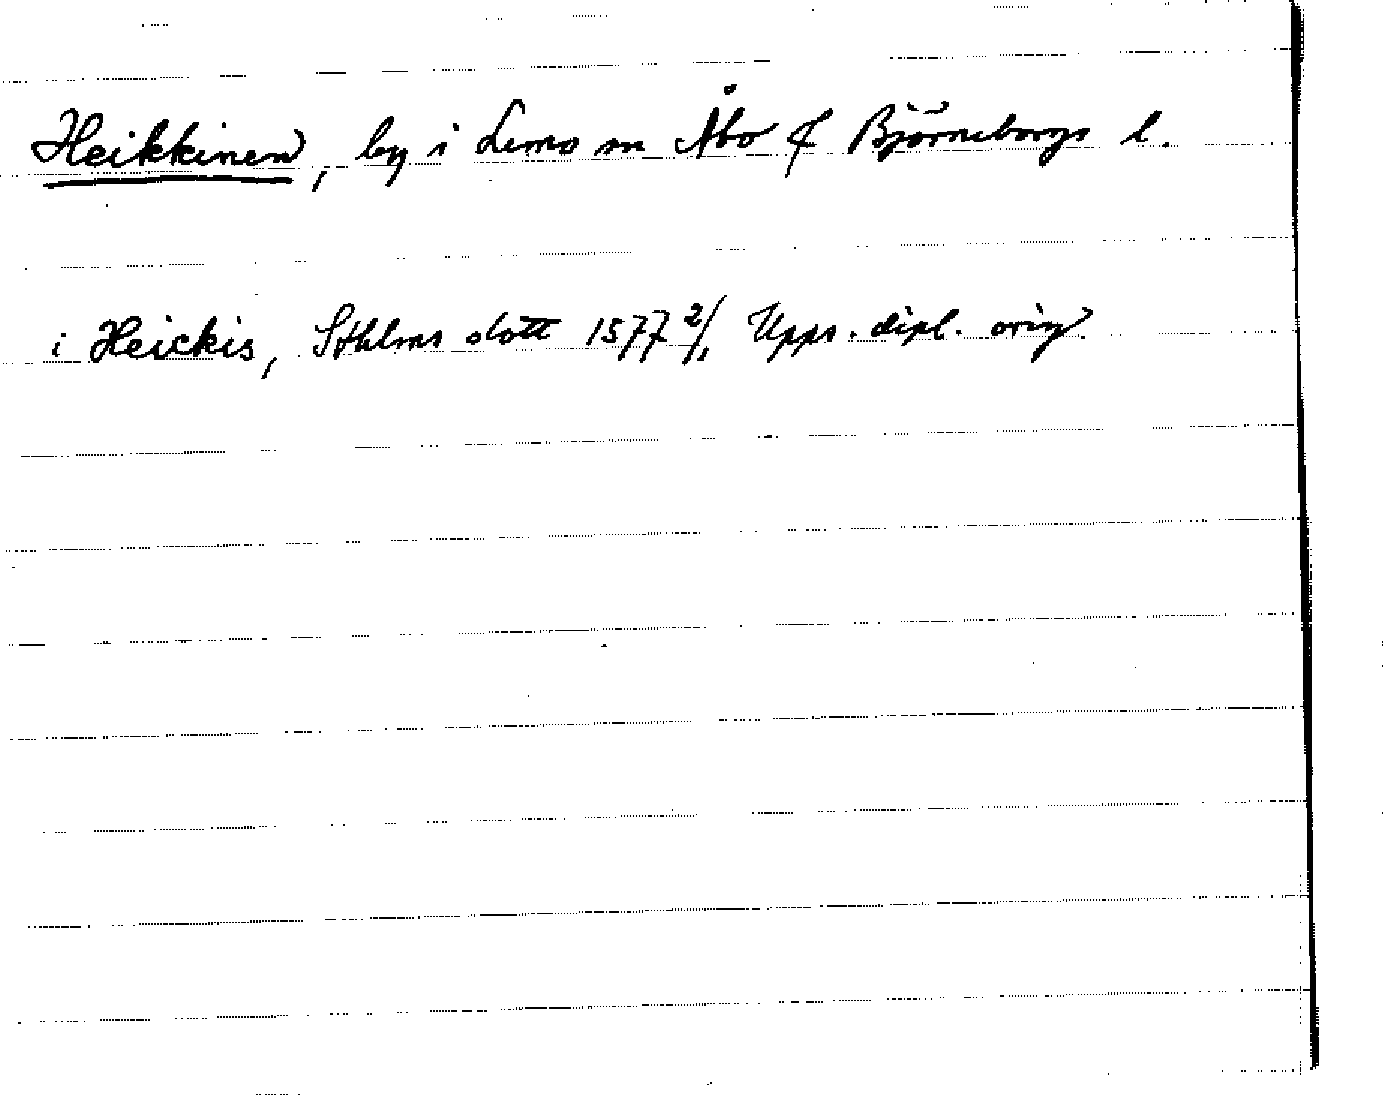 Heikkinen, by i Lemo sn Åbo & Björneborgs l.
i Heickis, Sthlms slott 1577 2/1 Upps. dipl. orig.